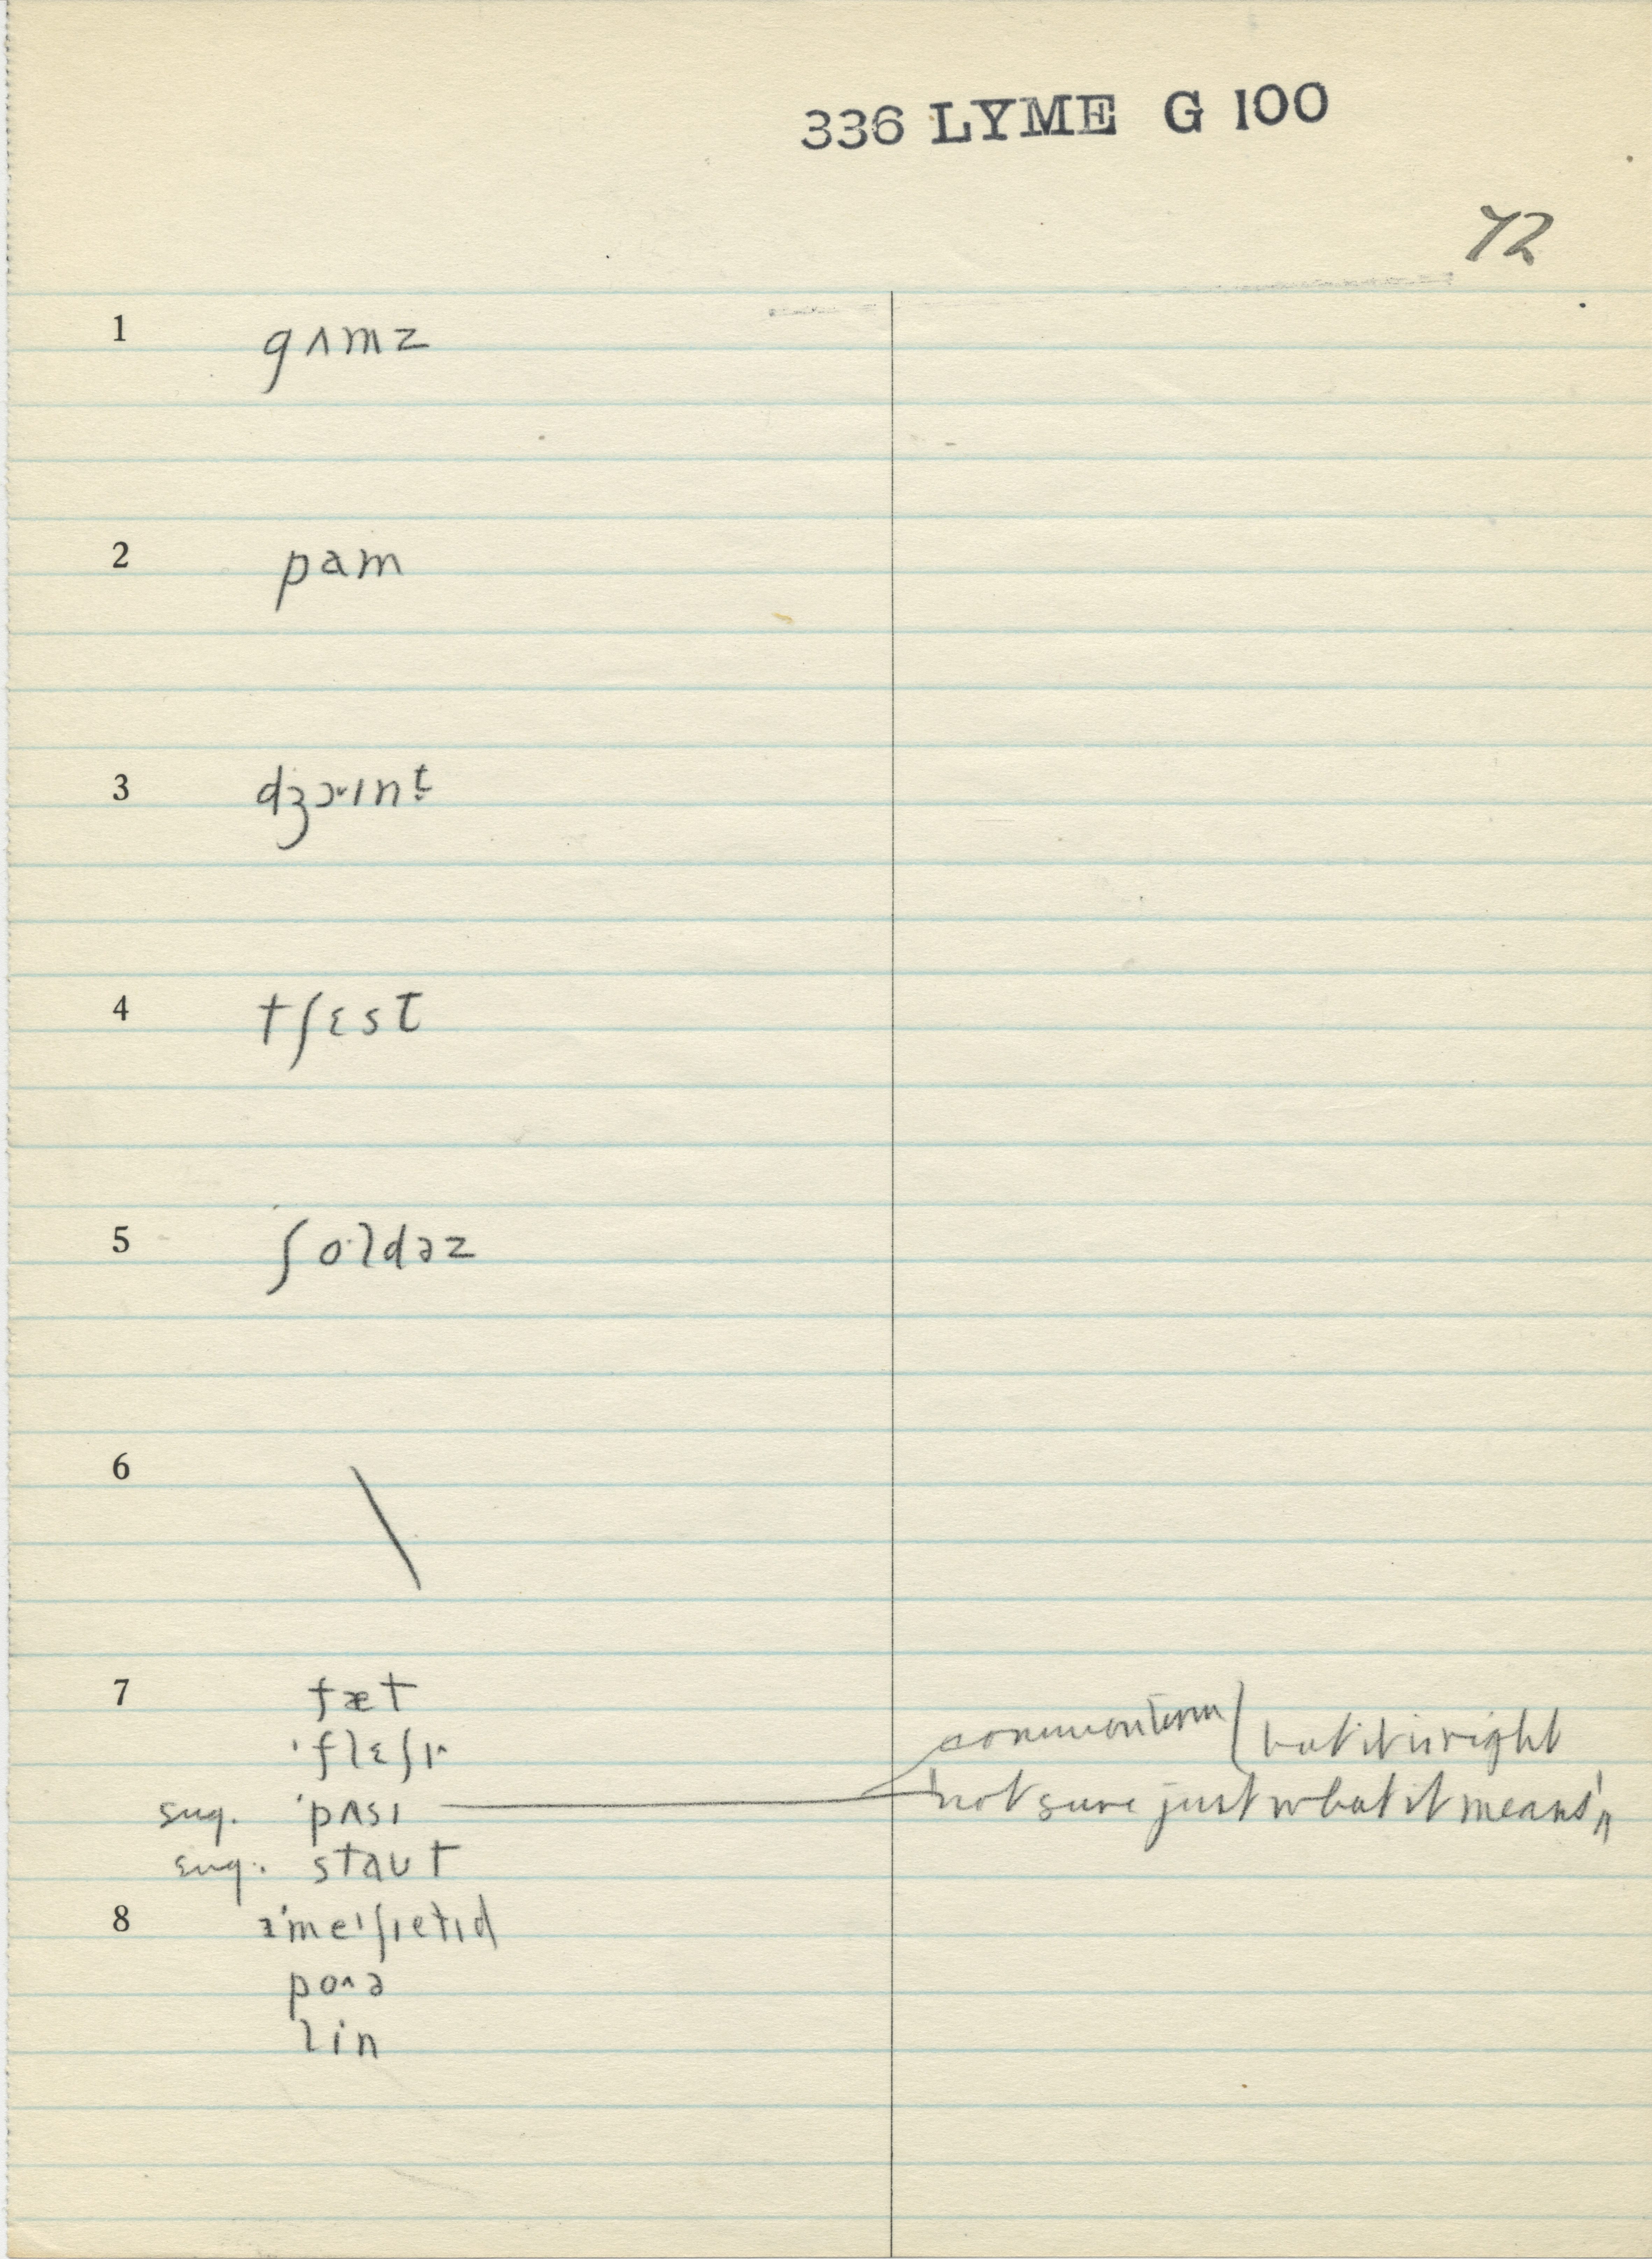 336 LYME G 100
72
1 gʌmz
2 pam
3 dʒɔˇɪnt̬
4 tʃɛst
5 ʃo·ldəz
6 \
7 fæt
ˈflɛʃɪ
sug. ˈpʌsɪ common term) but it is right
'not sure just what it means'
sug. staut
8
po^ə
lin